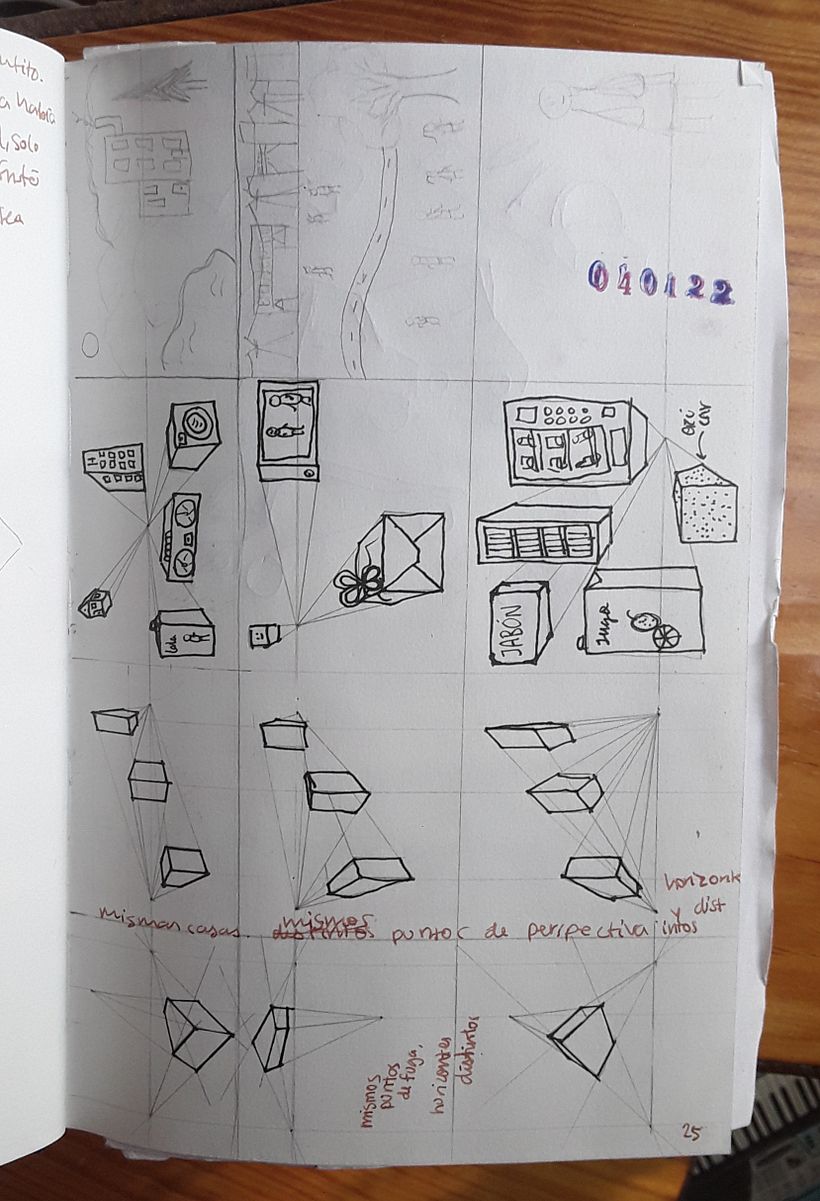 solo
040122
H
JABÓN
Jugo
mismas casas. mismos distintos puntos de perspectiva
horizonte
y dist
intos
mismos
puntos
de fuga,
horizontes
distintos
25